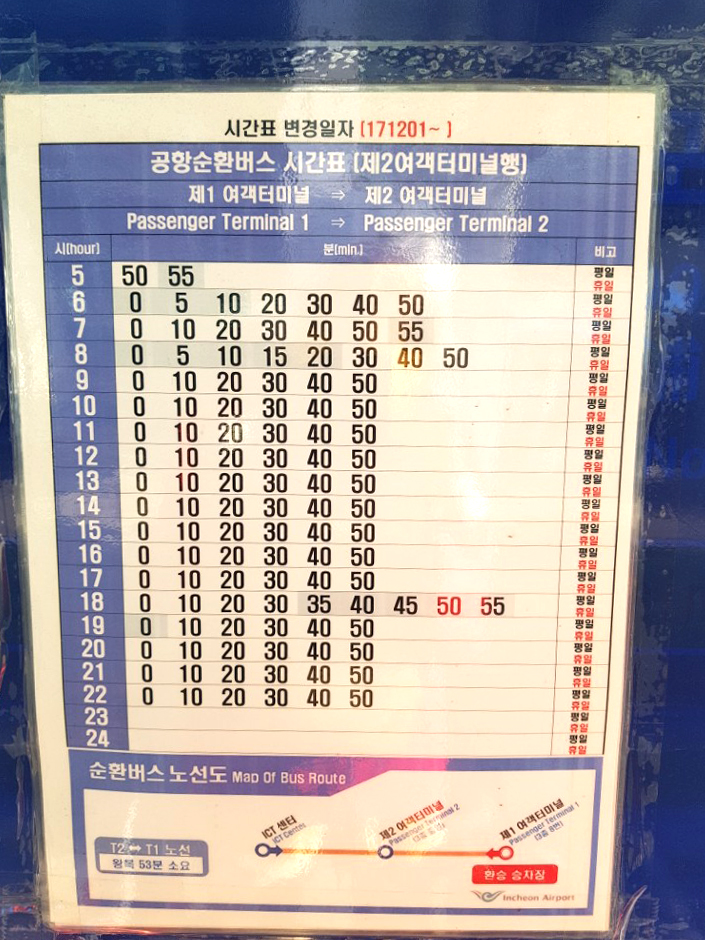 시간표 변경일자 (171201~ )
공항순환버스 시간표 (제2여객터미널행)
제1 여객터미널 ⇒ 제2 여객터미널
Passenger Terminal 1 ⇒ Passenger Terminal 2
시(hour) 분(min.) 비고
5 50 55 평일 휴일
6 0 5 10 20 30 40 50 평일 휴일
7 0 10 20 30 40 50 55 평일 휴일
8 0 5 10 15 20 30 40 50 평일 휴일
9 0 10 20 30 40 50 평일 휴일
10 0 10 20 30 40 50 평일 휴일
11 0 10 20 30 40 50 평일 휴일
12 0 10 20 30 40 50 평일 휴일
13 0 10 20 30 40 50 평일 휴일
14 0 10 20 30 40 50 평일 휴일
15 0 10 20 30 40 50 평일 휴일
16 0 10 20 30 40 50 평일 휴일
17 0 10 20 30 40 50 평일 휴일
18 0 10 20 30 35 40 45 50 55 평일 휴일
19 0 10 20 30 40 50 평일 휴일
20 0 10 20 30 40 50 평일 휴일
21 0 10 20 30 40 50 평일 휴일
22 0 10 20 30 40 50 평일 휴일
23 평일 휴일
24 평일 휴일
순환버스 노선도 Map Of Bus Route
ICT 센터
ICT Center
제2 여객터미널
Passenger Terminal 2
제1 여객터미널
Passenger Terminal 1
(3층 8번)
T2 ↔ T1 노선
왕복 53분 소요
환승 승차장
Incheon Airport